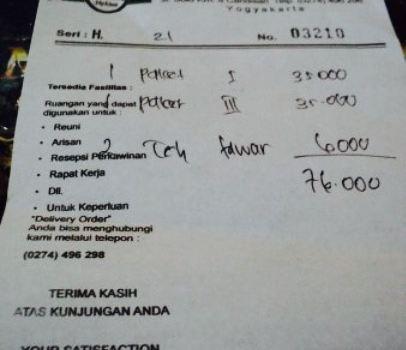 Yogyakarta
Seri : H. 21 No. 03210
1 Paket I 35000
Tersedia Fasilitas :
Ruangan yang dapat
digunakan untuk :
1 Paket III 35.000
• Reuni
• Arisan
2 Teh tawar 6000
• Resepsi Perkawinan
• Rapat Kerja
76.000
• Dll.
• Untuk Keperluan
"Delivery Order"
Anda bisa menghubungi
kami melalui telepon :
(0274) 496 298
TERIMA KASIH
ATAS KUNJUNGAN ANDA
YOUR SATISFACTION